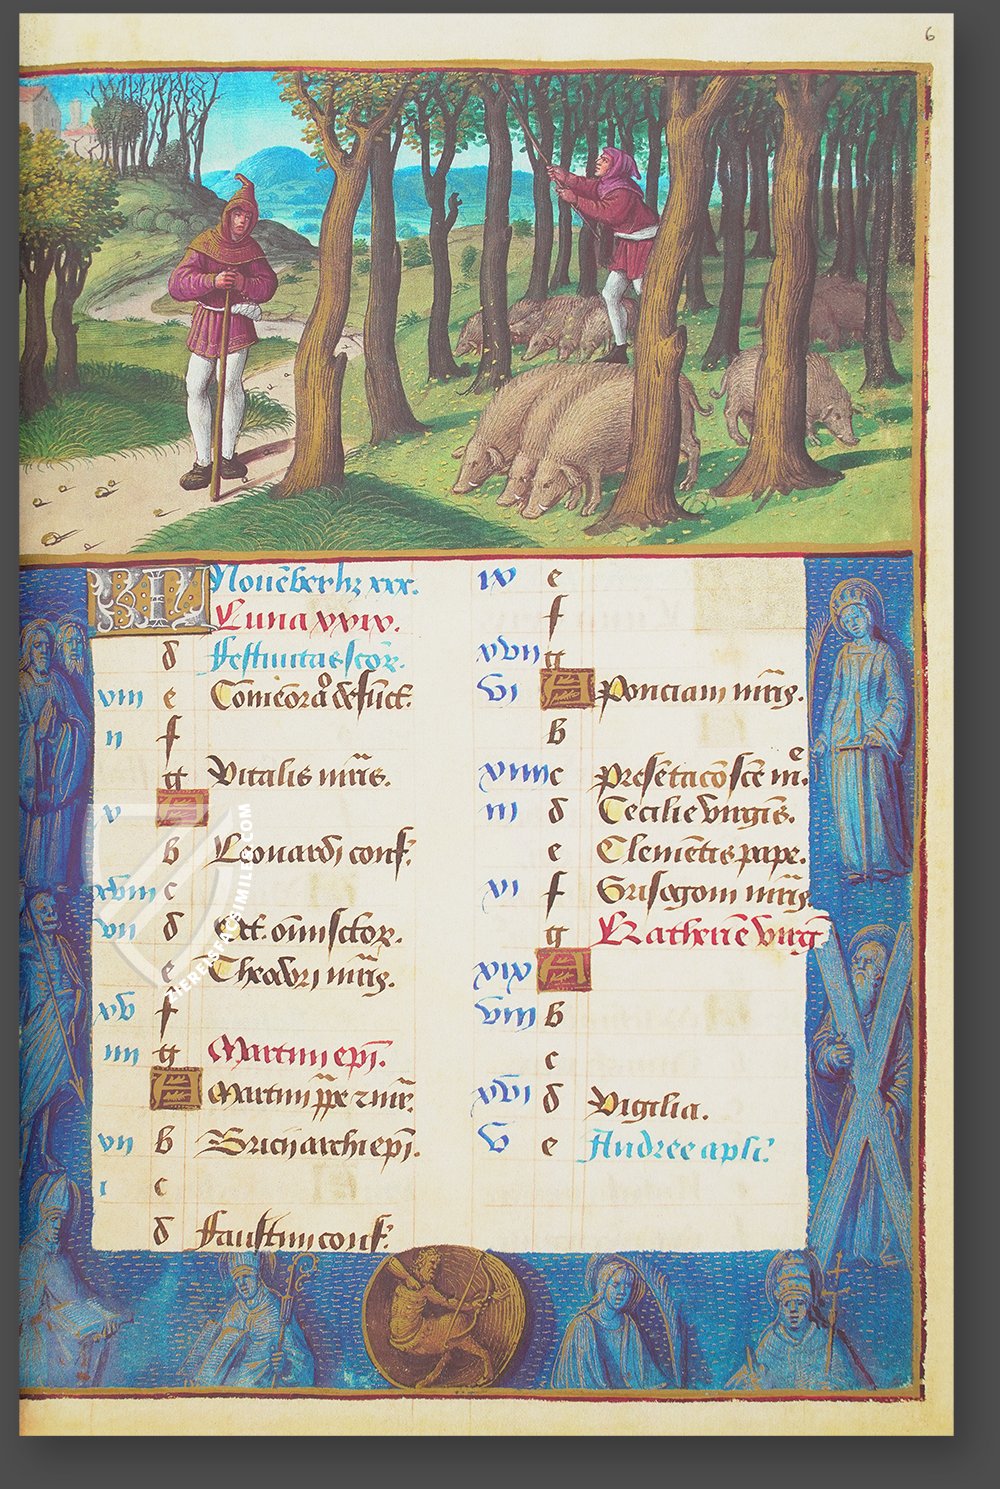 6
KL Nouẽber hz xxx.
Luna xxix.
d Festiuitas sctoꝝ.
viii e Cõmẽoraõ defũct.
ii f
g Vitalis mr̃is.
v A
b Leonardi conf.
xviii c
vii d Oct. oĩm sctoꝝ.
e Theodri mr̃is.
xv f
iiii g Martini ep̃i.
A Martini p̃pe
vii b Bricii archiep̃i.
i c
d Faustini conf.
ix e
f
xvii g
vi A Ponciani mr̃is.
b
xiiii c Presẽtacõ scẽ m.e
iii d Cecilie virgĩs.
e Clemẽtis pape.
xi f Grisogoni mr̃is.
g Katherĩe virg̃
xix A
viii b
c
xvi d Vigilia.
v e Andree apli.
ZIEREIS FACSIMILES.COM